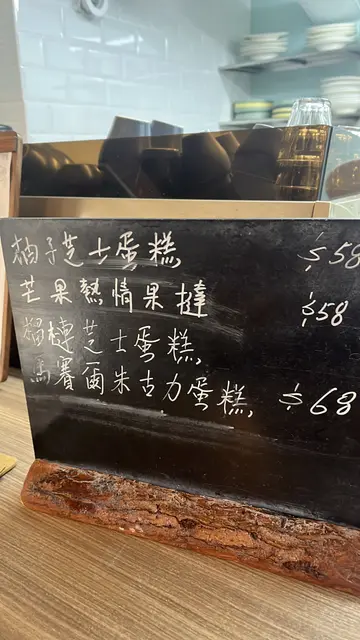 柚子芝士蛋糕 $58
芒果熱情果撻 $58
榴槤芝士蛋糕
馬賽爾朱古力蛋糕 $68